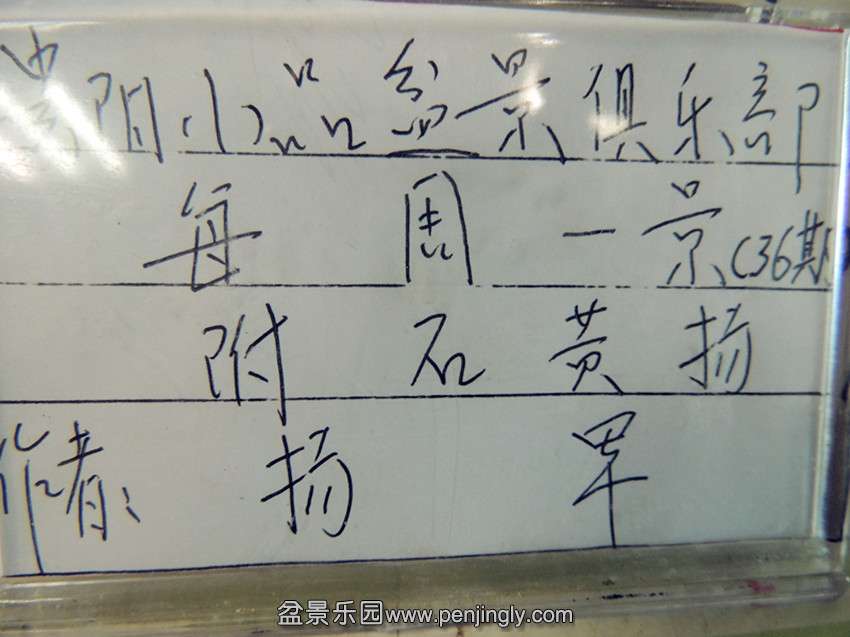 贵阳小品盆景俱乐部
每周一景(36期
附石黄扬
作者: 扬军
盆景乐园www.penjingly.com